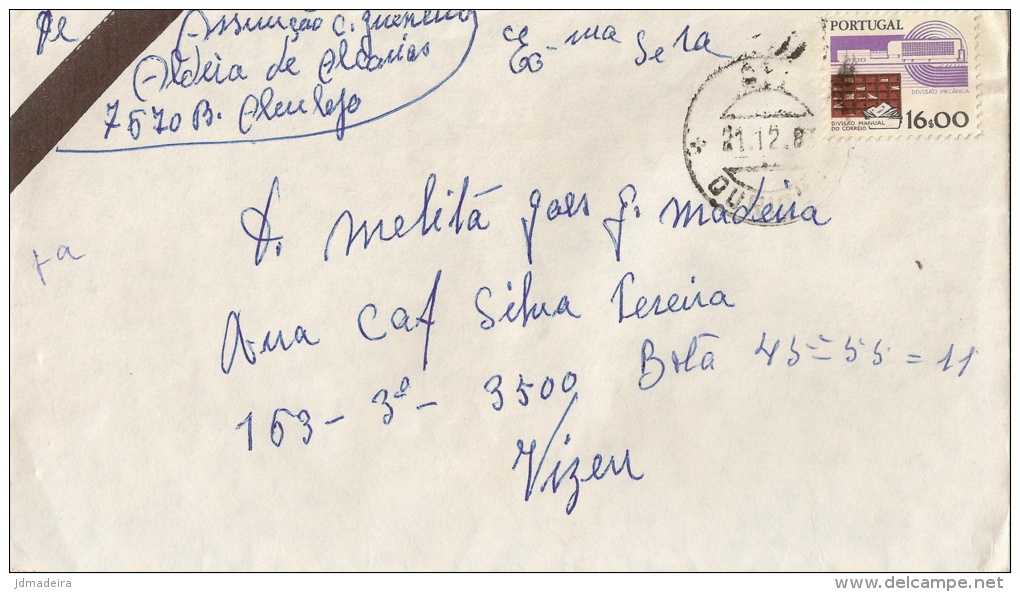 De Assunção C. Guerreiro
Aldeia de
7570 B. Alentejo
Sera
PORTUGAL
DIVISÃO MECÂNICA
DIVISÃO MANUAL
DO CORREIO
16$00
21.12.8
D. Melitã Goes G. Madeira
Rua Cap Silva Pereira
163-3º- 3500
Vizeu
45=55=11
+a
jdmadeira
www.delcampe.net